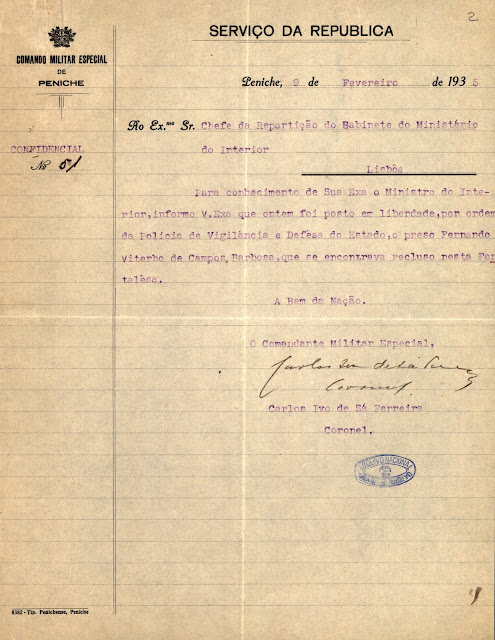 2
SERVIÇO DA REPUBLICA
COMANDO MILITAR ESPECIAL
DE
PENICHE
Peniche, 9 de Fevereiro de 1935
Ao Ex.mo Sr. Chefe da Repartição do Gabinete do Ministério
do Interior
CONFIDENCIAL
Nº 51
Lisbôa
Para conhecimento de Sua Exa o Ministro do Inte-
rior,informo V.Exa que ontem foi posto em liberdade,por ordem
da Policia de Vigilância e Defêsa do Estado,o preso Fernando
Viterbo de Campos Barbosa,que se encontrava recluso nesta For
taléza.
A Bem da Nação.
O Comandante Militar Especial,
Coronel.
Carlos Ivo de Sá Ferreira
Coronel.
ARQUIVO NACIONAL
8382 - Tip. Penichense, Peniche